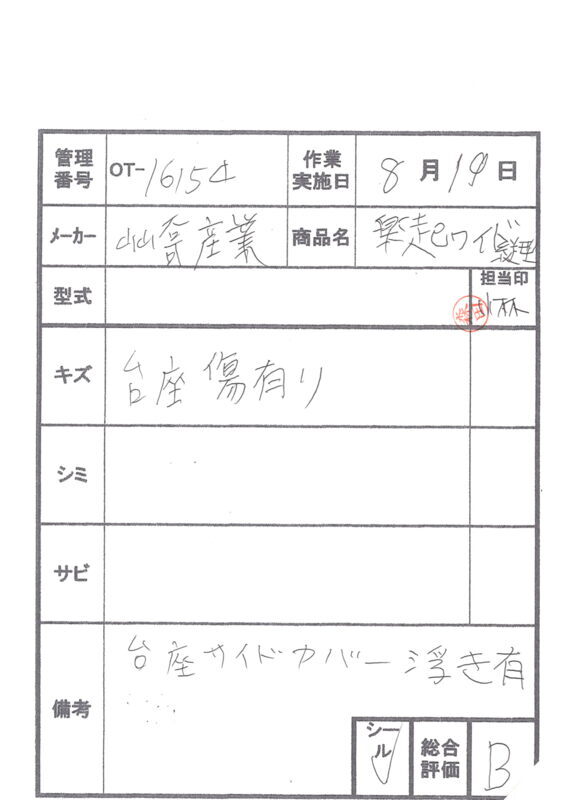 管理番号 OT-16154 作業実施日 8月19日
メーカー 山崎産業 商品名 楽起ワイド
型式 担当印
小林
キズ 台座 傷有り
シミ
サビ
備考 台座サイドカバー浮き有
シール ✓ 総合評価 B